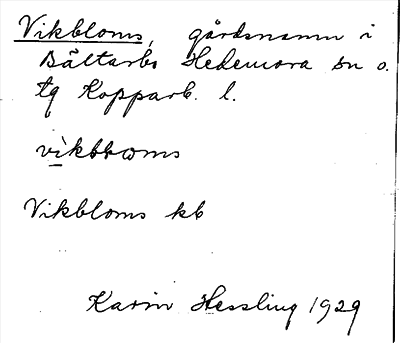 Vikbloms, gårdsnamn i
Bältarbo Hedemora sn o.
tg Kopparb. l.
vikblωms
Vikbloms kb
Karin Hessling 1929